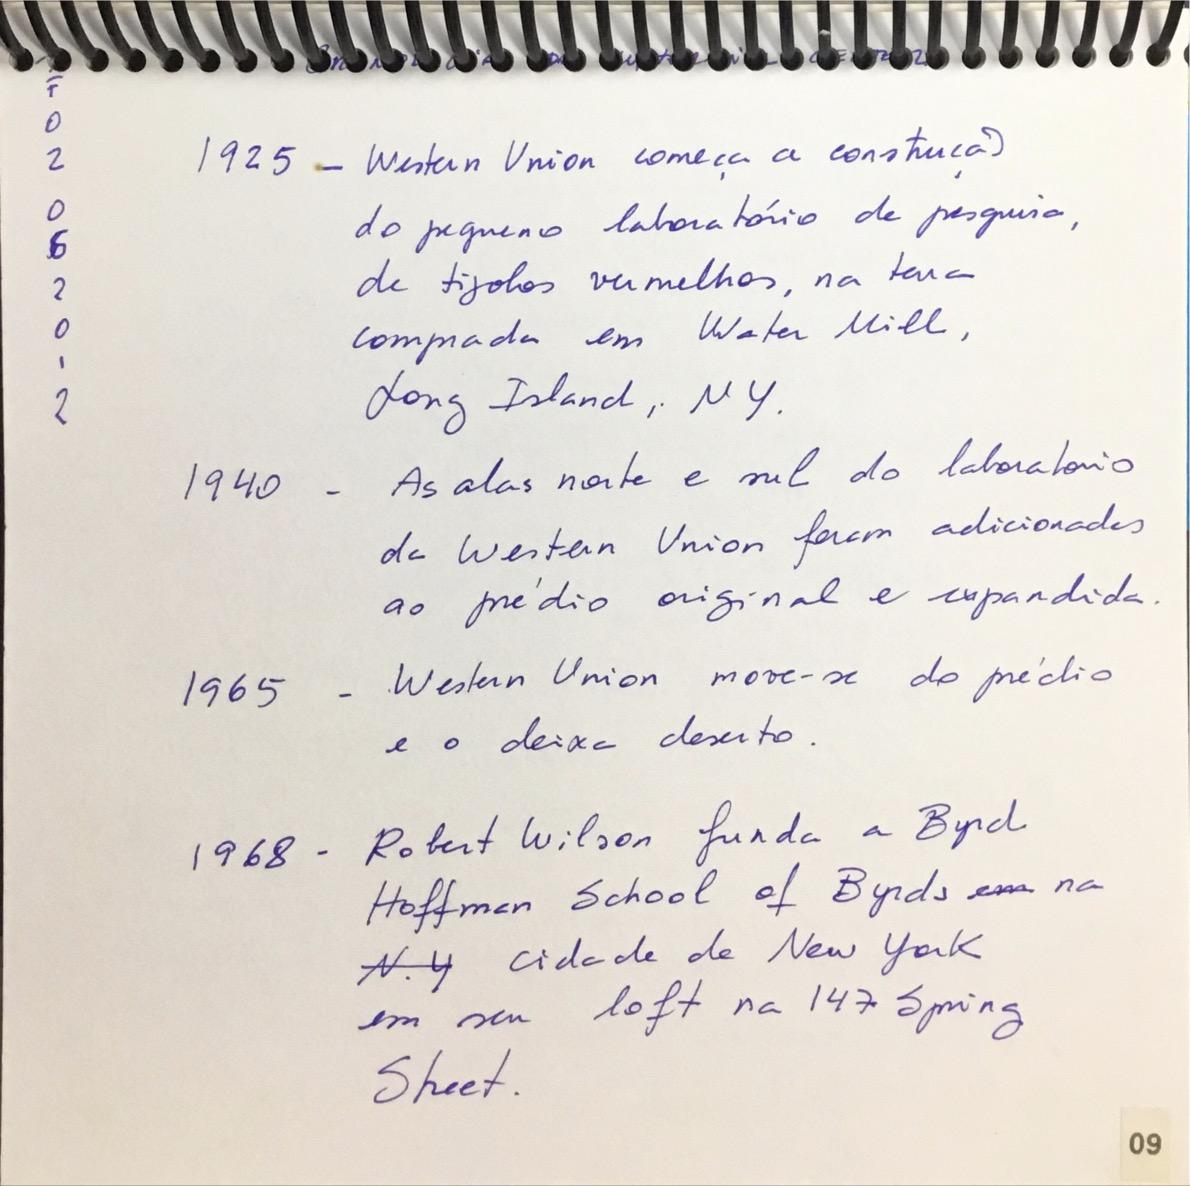 F
0
2
0
6
2
0
1
2
1925 - Western Union começa a construção
do pequeno laboratório de pesquisa,
de tijolos vermelhos, na terra
comprada em Water Mill,
Long Island, NY.
1940 - As alas norte e sul do laboratorio
da Western Union foram adicionadas
ao prédio original e expandida.
1965 - Western Union move-se do prédio
e o deixa deserto.
1968 - Robert Wilson funda a Byrd
Hoffman School of Byrds em na
N.Y cidade de New York
em seu loft na 147 Spring
Street.
09